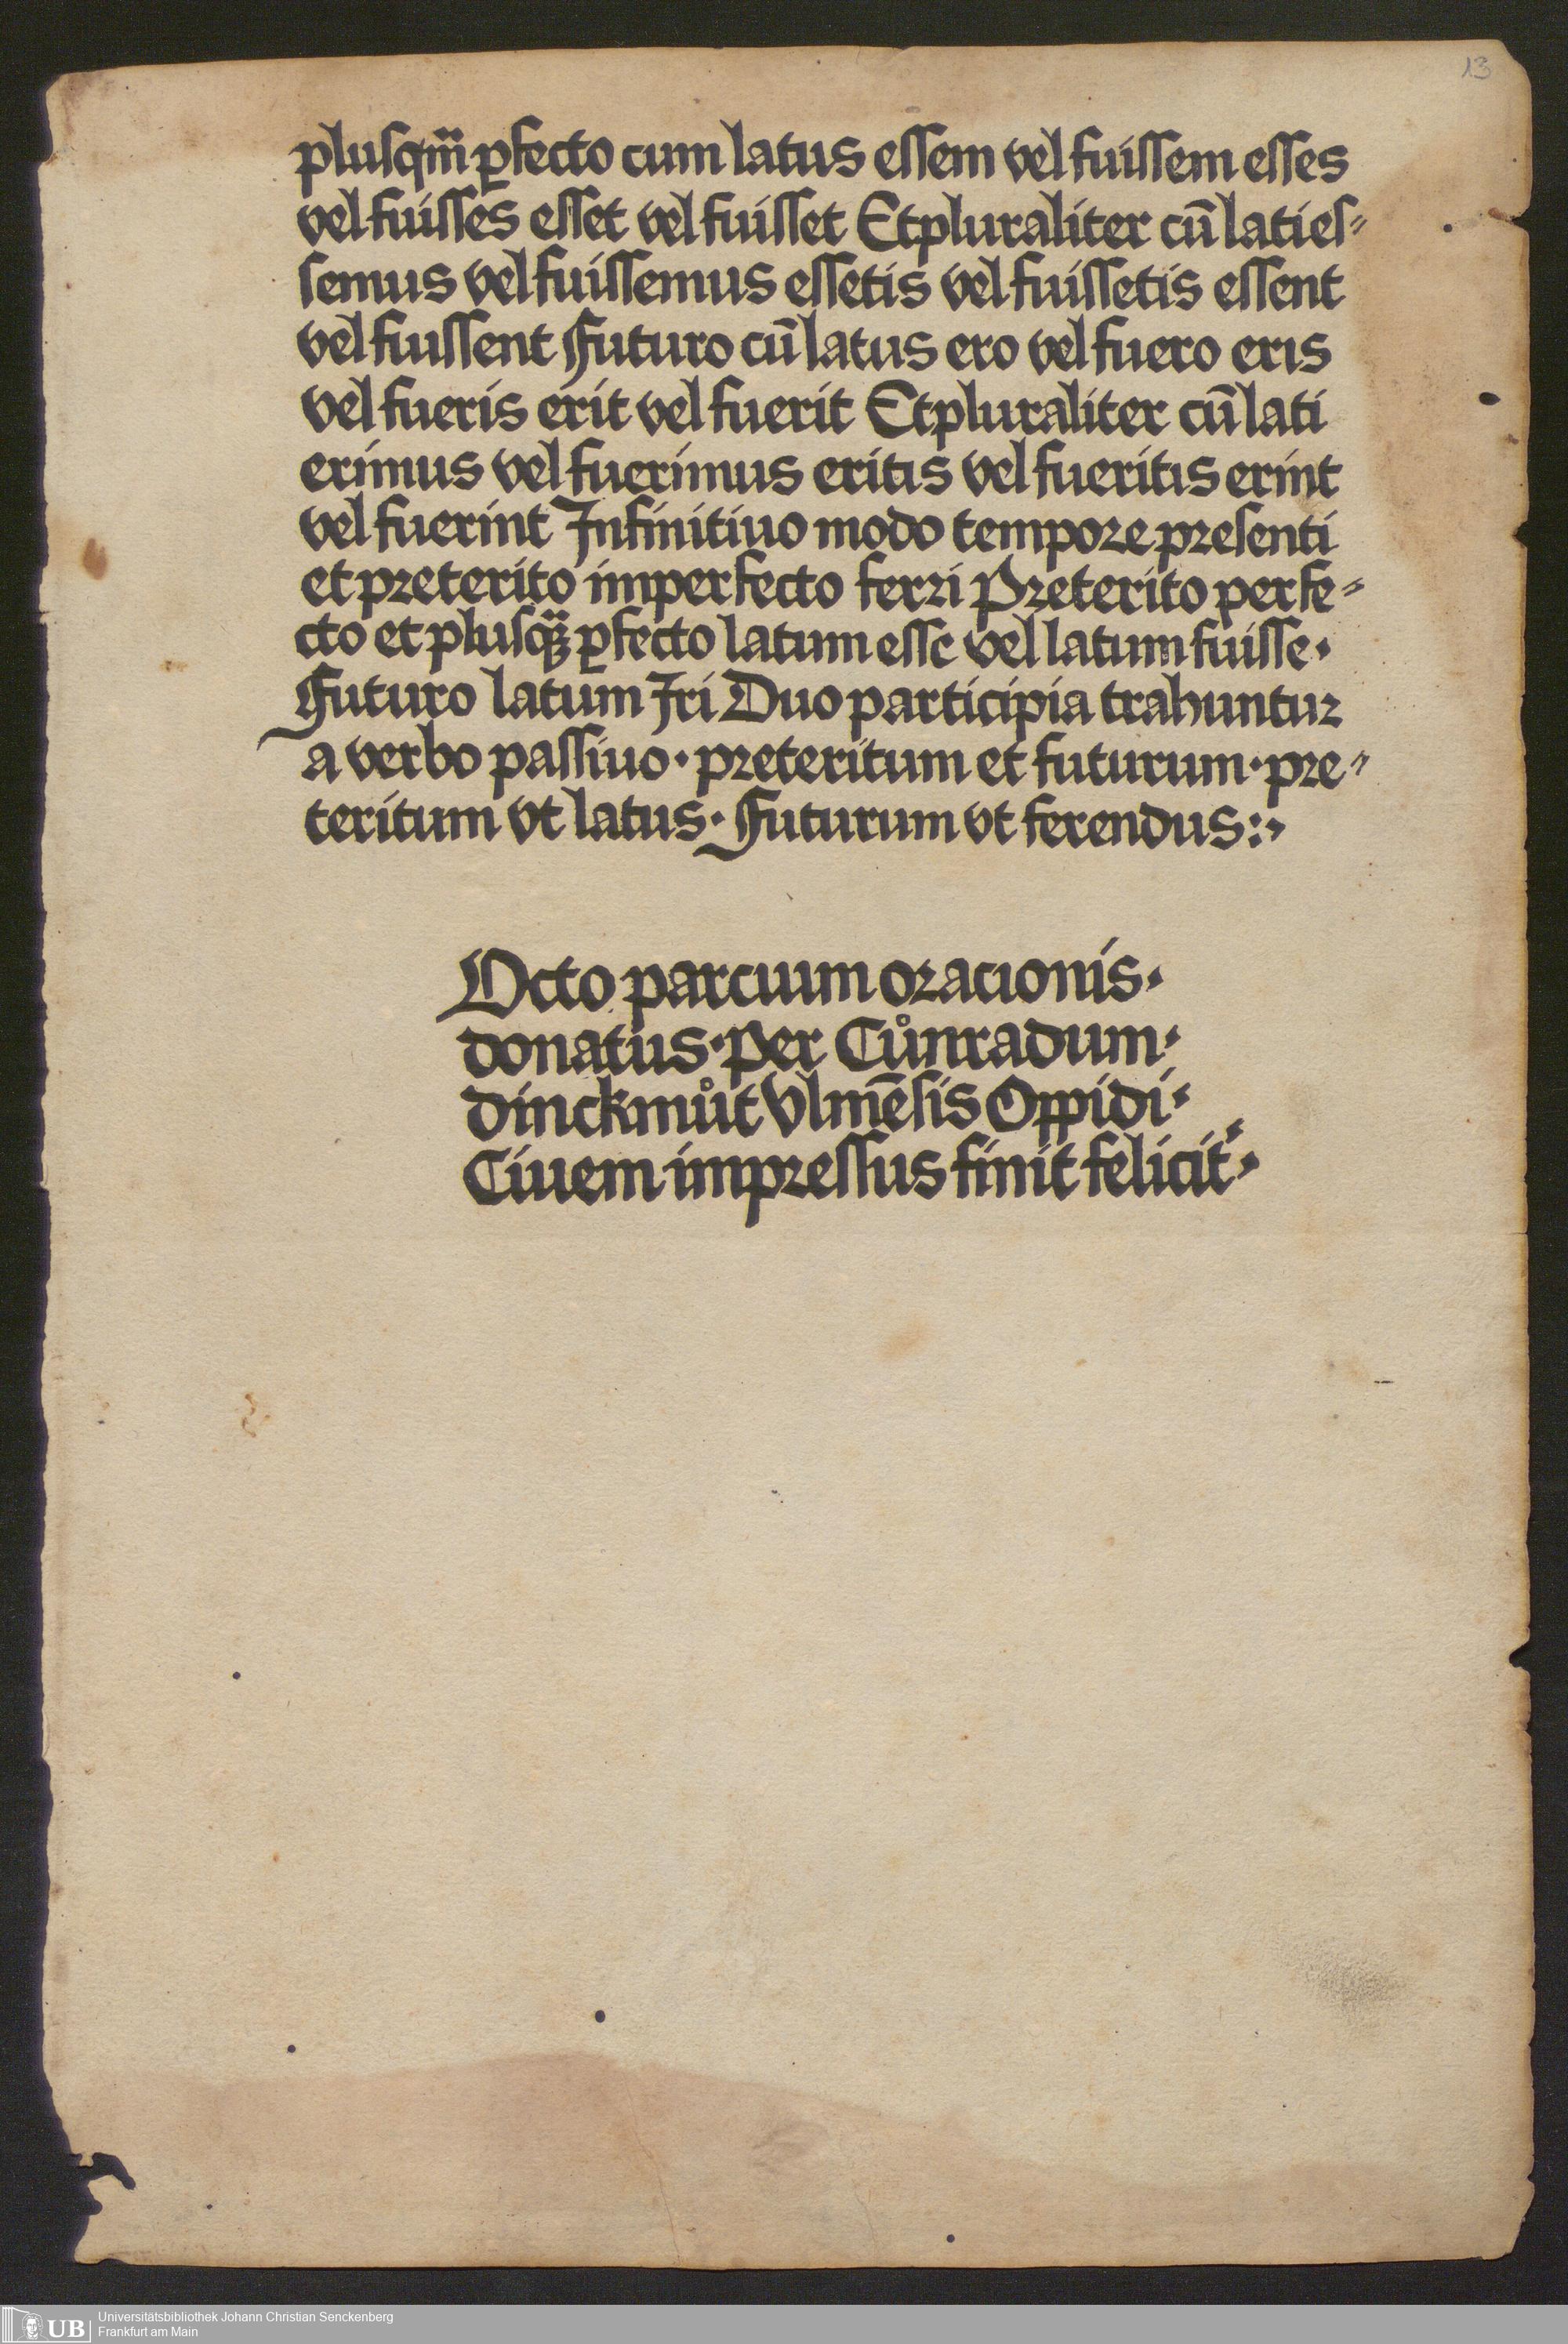 13
pluſqm̃ ꝑfecto cum latus eſſem vel fuiſſem eſſes
vel fuiſſes eſſet vel fuiſſet Et pluraliter cū lati eſ⸗
ſemus vel fuiſſemus eſſetis vel fuiſſetis eſſent
vel fuiſſent Futuro cū latus ero vel fuero eris
vel fueris erit vel fuerit Et pluraliter cū lati
erimus vel fuerimus eritis vel fueritis erint
vel fuerint Infinitiuo modo tempore preſenti
et preterito imperfecto ferri Preterito perfe⸗
cto et pluſqꝫ ꝑfecto latum eſſe vel latum fuiſſe·
Futuro latum Iri Duo participia trahuntur
a verbo paſſiuo· preteritum et futurum· pre⸗
teritum vt latus· Futurum vt ferendus:·
Octo parcium oracionis·
donatus· per Cůnradum·
dinckmůt Vlmēſis Oppidi·
Ciuem impreſſus finit felicit᷑·
UB
Universitätsbibliothek Johann Christian Senckenberg
Frankfurt am Main